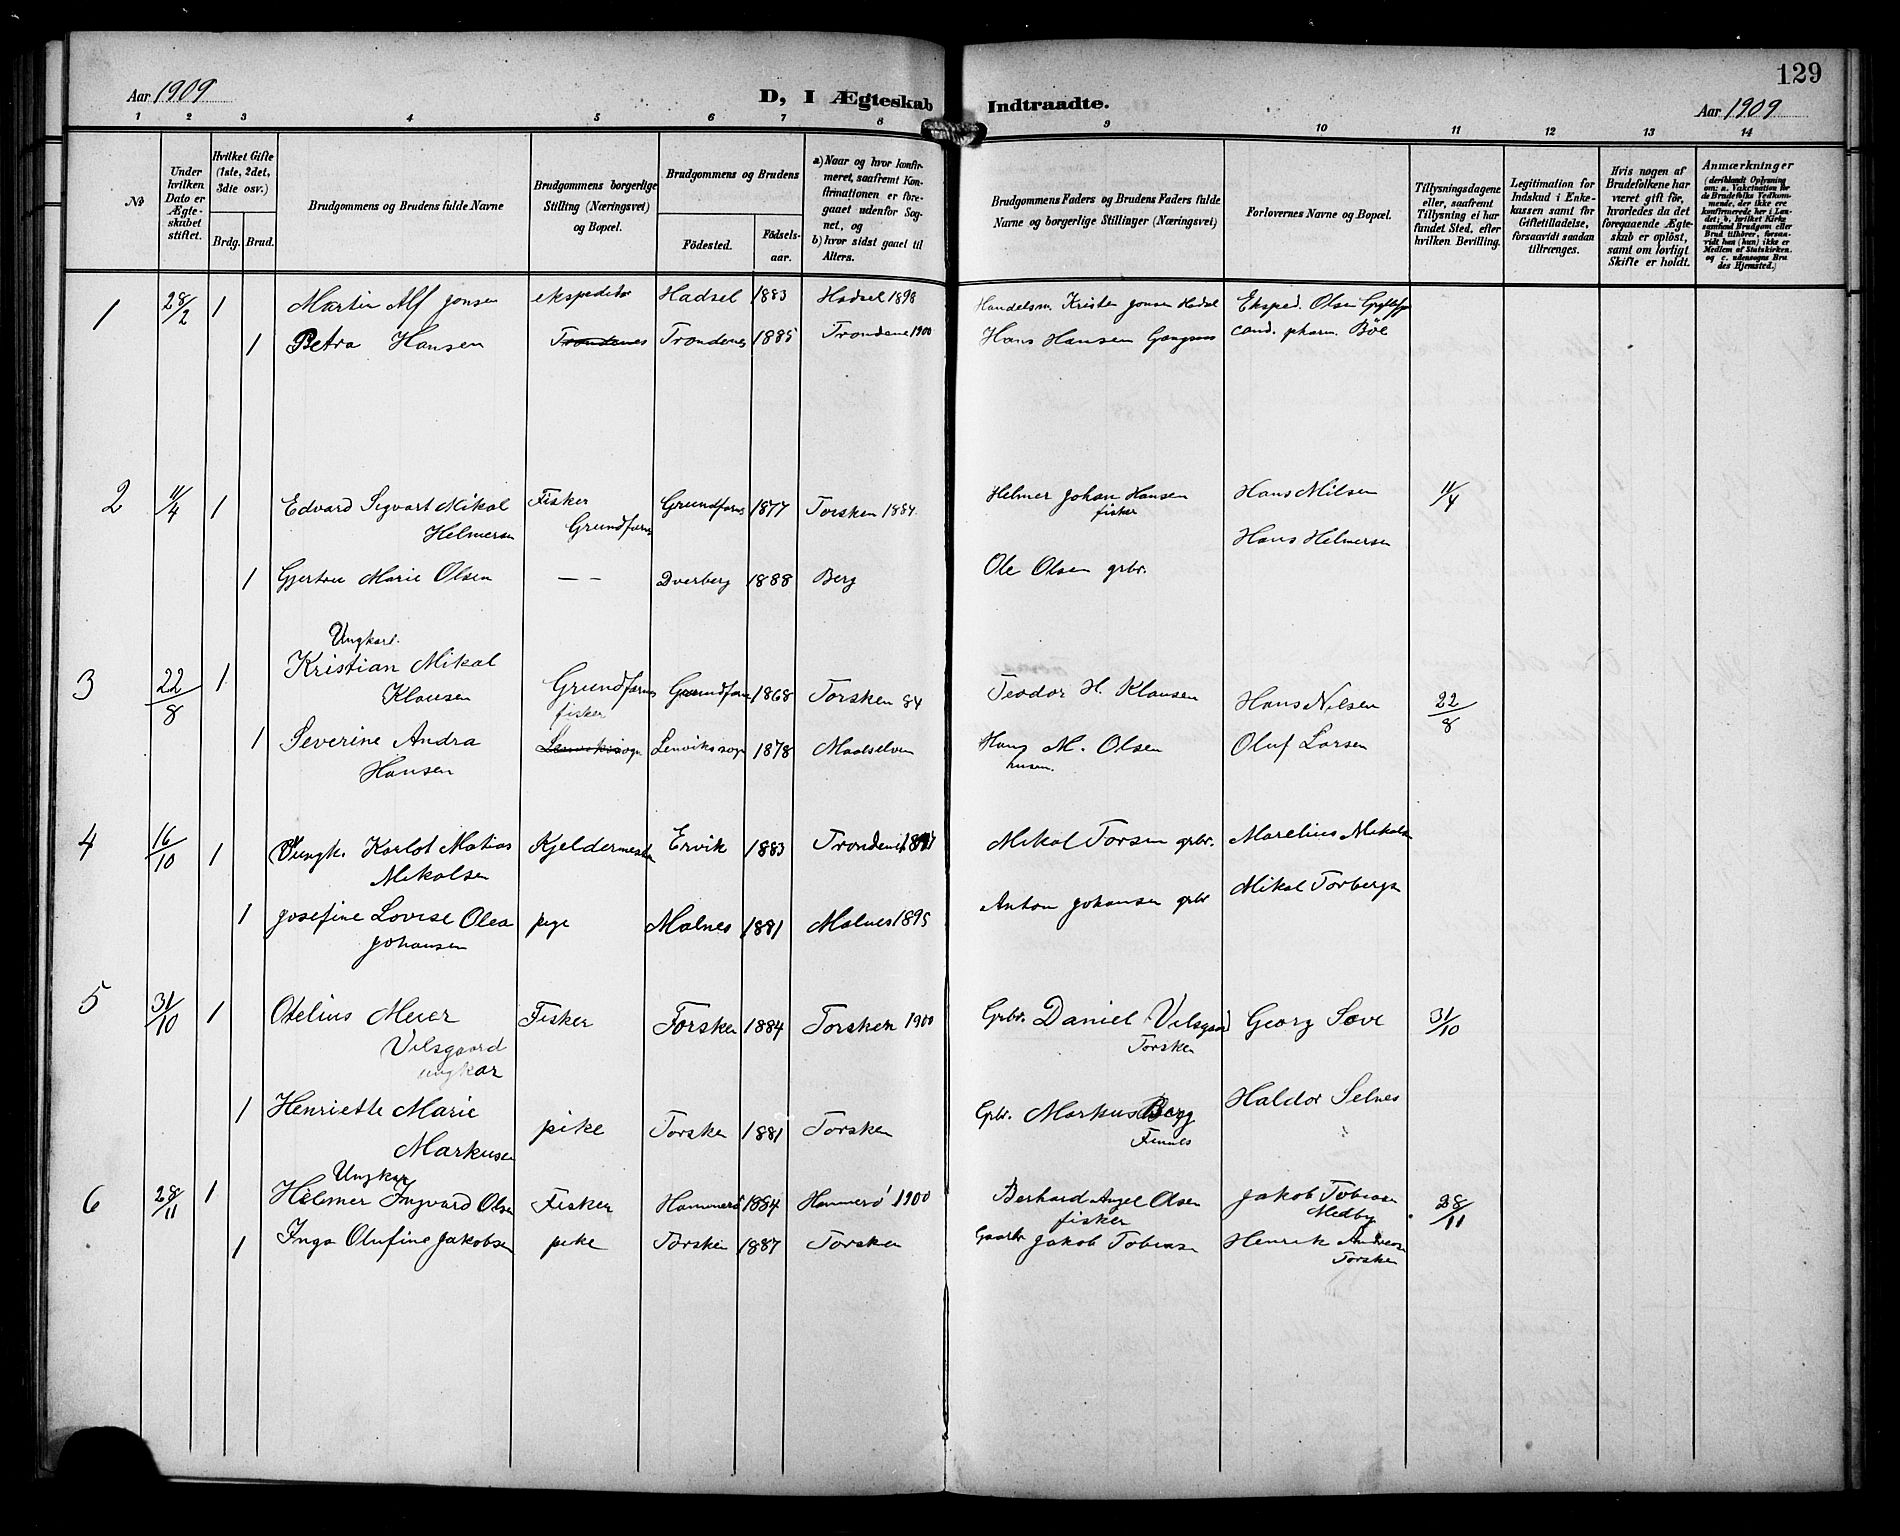 129
Aar 1909
D, I Ægteskab Indtraadte.
Aar 1909
1 2 3 4 5 6 7 8 9 10 11 12 13 14
№
Under hvilken Dato er Ægteskabet stiftet.
Hvilket Gifte (1ste, 2det, 3die osv.)
Brdg. Brud.
Brudgommens og Brudens fulde Navne
Brudgommens borgerlige Stilling (Næringsvei) og Bopæl.
Brudgommens og Brudens
Fødested.
Fødselsaar.
a) Naar og hvor konfirmeret, saafremt Konfirmationen er foregaaet udenfor Sognet, og
b) hvor sidst gaaet til Alters.
Brudgommens Faders og Brudens Faders fulde Navne og borgerlige Stillinger (Næringsvei)
Forlovernes Navne og Bopæl.
Tillysningsdagene eller, saafremt Tillysning ei har fundet Sted, efter hvilken Bevilling.
Legitimation for Indskud i Enkekassen samt for Giftetilladelse, forsaavidt saadan tiltrænges.
Hvis nogen af Brudefolkene har været gift før, hvorledes da det foregaaende Ægteskab er opløst, samt om lovligt Skifte er holdt.
Anmærkninger
(deriblandt Oplysning om: a. Vakcination for de Brudefolks Vedkommende, der ikke ere konfirmerede her i Landet; b. hvilket Kirkesamfund Brudgom eller Brud tilhører, forsaavidt han (hun) ikke er Medlem af Statskirken, og c. udensogns Brudes Hjemsted.)
1 28/2 1 Martin Alf Jonsen ekspeditør Hadsel 1883 Hadsel 1898 Handelsm. Kristen Jonsen Hadsel Eksped. Olsen
1 Petra Hansen Trondenes Trondenes 1885 Trondene 1900 Hans Hansen cand. pharm. Böe
2 11/4 1 Edvard Sigvart Mikal Helmersen Fisker Grundfarnes Grundfarnes 1877 Torsken 1884. Helmer Johan Hansen fisker Hans Nilsen 11/4
Hans Helmersen
1 Gjertrue Marie Olsen – – Dverberg 1888 Berg Ole Olsen grbr.
3 22/8 1 Ungkarl. Kristian Mikal Klausen Grundfarnes fisker Grundfarnes 1868 Torsken 84 Teodor H. Klausen Hans Nilsen 22/8
1 Severine Andra Hansen Lenvikssogn Lenvikssogn 1878 Maalselven Hans M. Olsen husm. Oluf Larsen
4 16/10 1 Ungk. Karlot Matias Mikalsen Kjeldermester Ervik 1883 Trondenes Mikal Torsen grbr. Marelius Mikalsen
1 Josefine Lovise Olea Johansen pige Malnes 1881 Malnes 1895 Anton Johansen grbr Mikal Torbergsen
5 31/10 1 Otelius Meier Vilsgaard ungkar Fisker Torsken 1884 Torsken 1900 Grbr. Daniel Vilsgaard Torsken Georg Sæve 31/10
1 Henriette Marie Markusen pike Torsken 1881 Torsken Grbr. Markus Berg Finnes Haldor Selnes
6 28/11 1 Ungkar Hilmer Ingvard Olsen Fisker Hammerö 1884 Hammerö 1900 Berhard Angel Olsen fisker Jakob Tobiasen Medby 28/11
1 Inga Olufine Jakobsen pike Torsken 1887 Torsken Gaarbr Jakob Tobiasen Henrik Andreasen Torsken